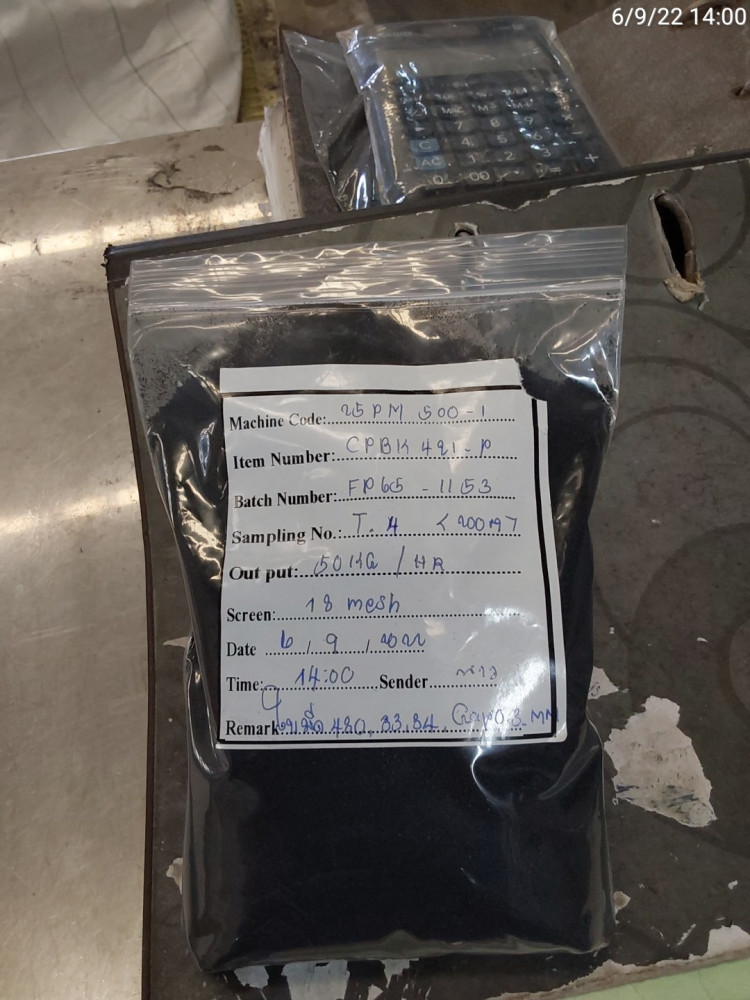 6/9/22 14:00
MRC M- M+
7 8 9
C 4 5 6
AC 1 2 3 +
0 00 =
Machine Code: 25 PM 500-1
Item Number: CPBK 421-P
Batch Number: FP65-1153
Sampling No.: T.4
Out put: 50KG/HR
Screen: 18 mesh
Date 6/9/2022
Time: 14:00 Sender
Remark: 33,34, 0.3 MM